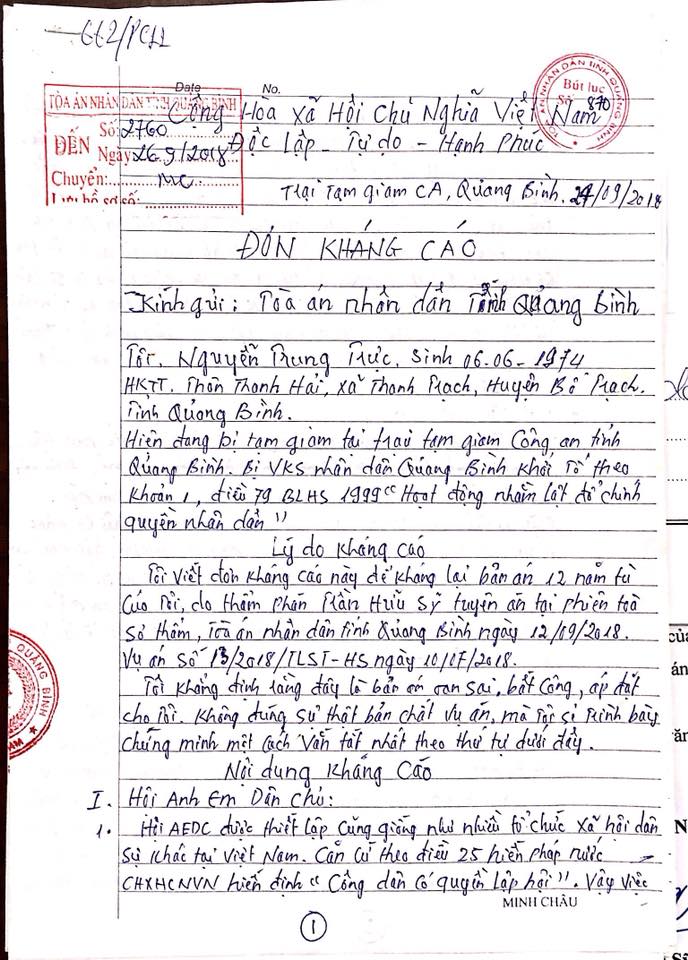 662/PC11
Date No.
TÒA ÁN NHÂN DÂN TỈNH QUẢNG BÌNH
ĐẾN
Số: 2760
Ngày 26/9/2018
Chuyển: MC
Lưu hồ sơ số:
TÒA ÁN NHÂN DÂN TỈNH QUẢNG BÌNH
Bút lục
Số 870
Cộng Hòa Xã Hội Chủ Nghĩa Việt Nam
Độc Lập - Tự do - Hạnh Phúc
Trại Tạm giam CA, Quảng Bình. 24/09/2018
ĐƠN KHÁNG CÁO
Kính gửi: Tòa án nhân dân Tỉnh Quảng Bình
Tôi. Nguyễn Trung Trực. Sinh 06.06-1974
HKTT. Thôn Thanh Hải, xã Thanh Trạch, Huyện Bố Trạch.
Tỉnh Quảng Bình.
Hiện đang bị tạm giam tại trại tạm giam Công an tỉnh
Quảng Bình. Bị VKS nhân dân Quảng Bình Khởi Tố theo
Khoản 1, điều 79 BLHS 1999 "Hoạt động nhằm lật đổ chính
quyền nhân dân"
Lý do Kháng cáo
Tôi viết đơn Kháng cáo này để Kháng lại bản án 12 năm tù
Của Tôi, do thẩm phán Trần Hữu Sỹ tuyên án tại phiên toà
Sơ thẩm, Tòa án nhân dân tỉnh Quảng Bình ngày 12/09/2018.
Vụ án số 13/2018/TLST-HS ngày 10/07/2018.
Tôi Khẳng định rằng đây là bản án oan sai, bất Công, áp đặt
cho Tôi. Không đúng sự thật bản chất vụ án, mà Tôi sẽ Trình bày
Chứng minh một cách Vắn tắt nhất theo thứ tự dưới đây.
Nội dung Kháng Cáo
I. Hội Anh Em Dân Chủ:
1. Hội AEDC được thiết lập Cũng giống như nhiều tổ chức xã hội dân
sự khác tại Việt Nam. Căn Cứ theo điều 25 hiến pháp nước
CHXHCNVN hiến định "Công dân có quyền lập hội". Vậy việc
MINH CHÂU
1
QUẢNG BÌNH
của